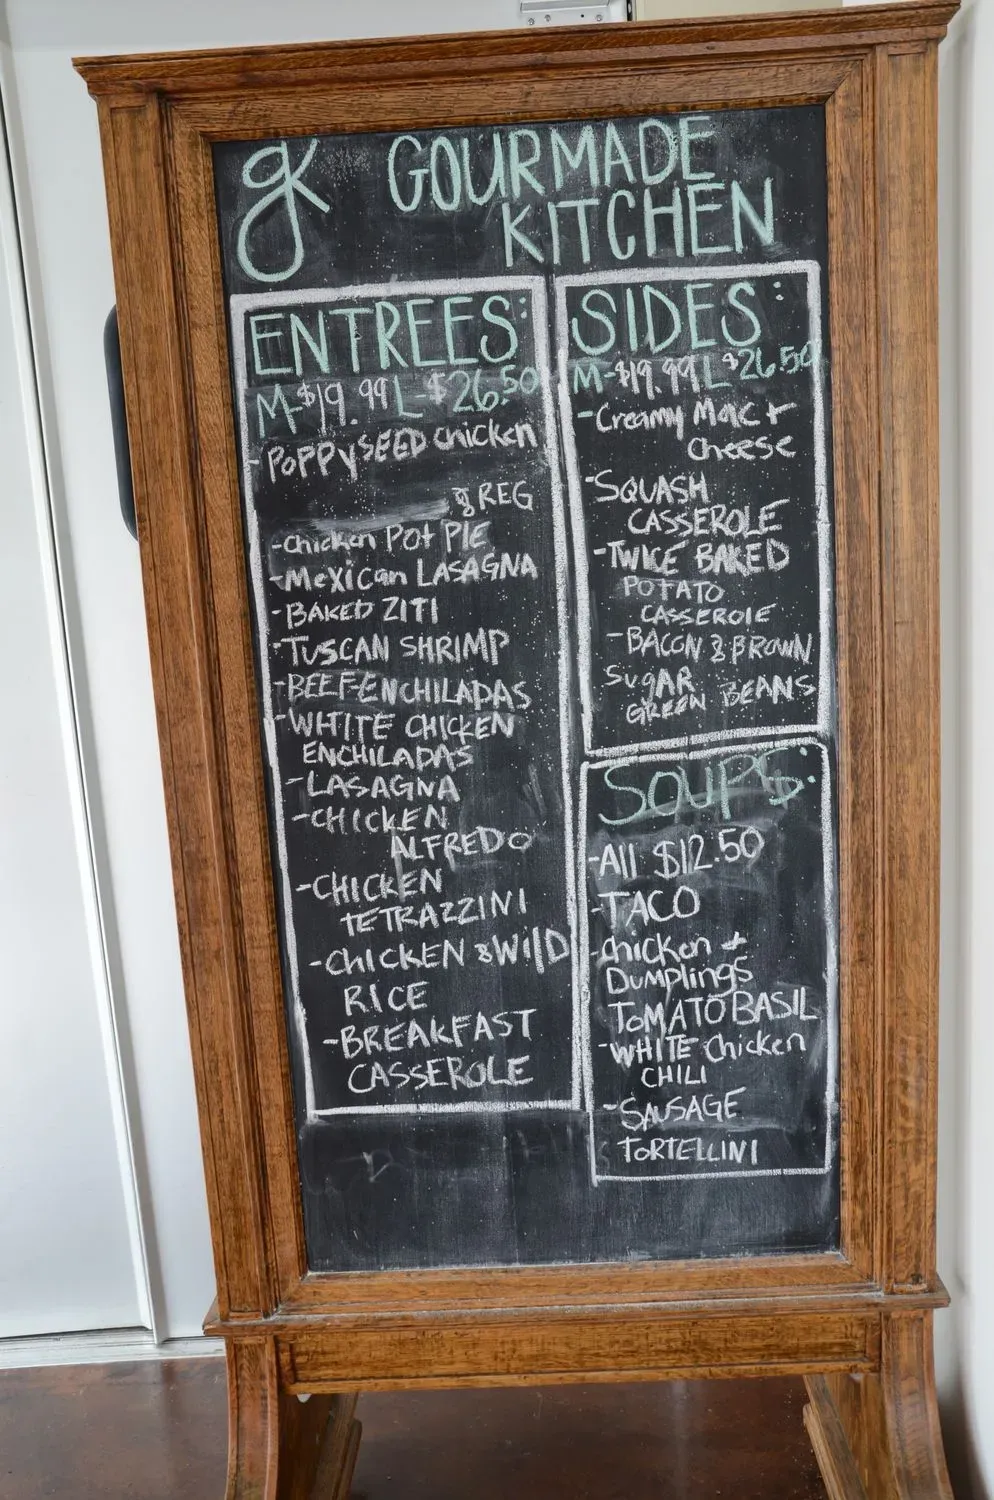 gk GOURMADE
KITCHEN
ENTREES:
M-$19.99 L-$26.50
-POPPYSEED chicken
& REG
-chicken POT PIE
-MeXican LASAGNA
-BAKED ZITI
-TUSCAN SHRIMP
-BEEF-ENCHILADAS
-WHITE CHICKEN
ENCHILADAS
-LASAGNA
-CHICKEN
ALFREDO
-CHICKEN
TETRAZZINI
-CHICKEN & WilD
RICE
-BREAKFAST
CASSEROLE
SIDES:
M-$19.99 L $26.50
-Creamy Mac +
cheese
-SQUASH
CASSEROLE
-TWICE BAKED
POTATO
CASSEROlE
-BACON & BROWN
SugAR
GREEN BEANS
SOUPS:
-All $12.50
-TACO
-chicken +
Dumplings
ToMATO BASIL
-WHITE Chicken
CHILI
-SAUSAGE
TORTELLINI